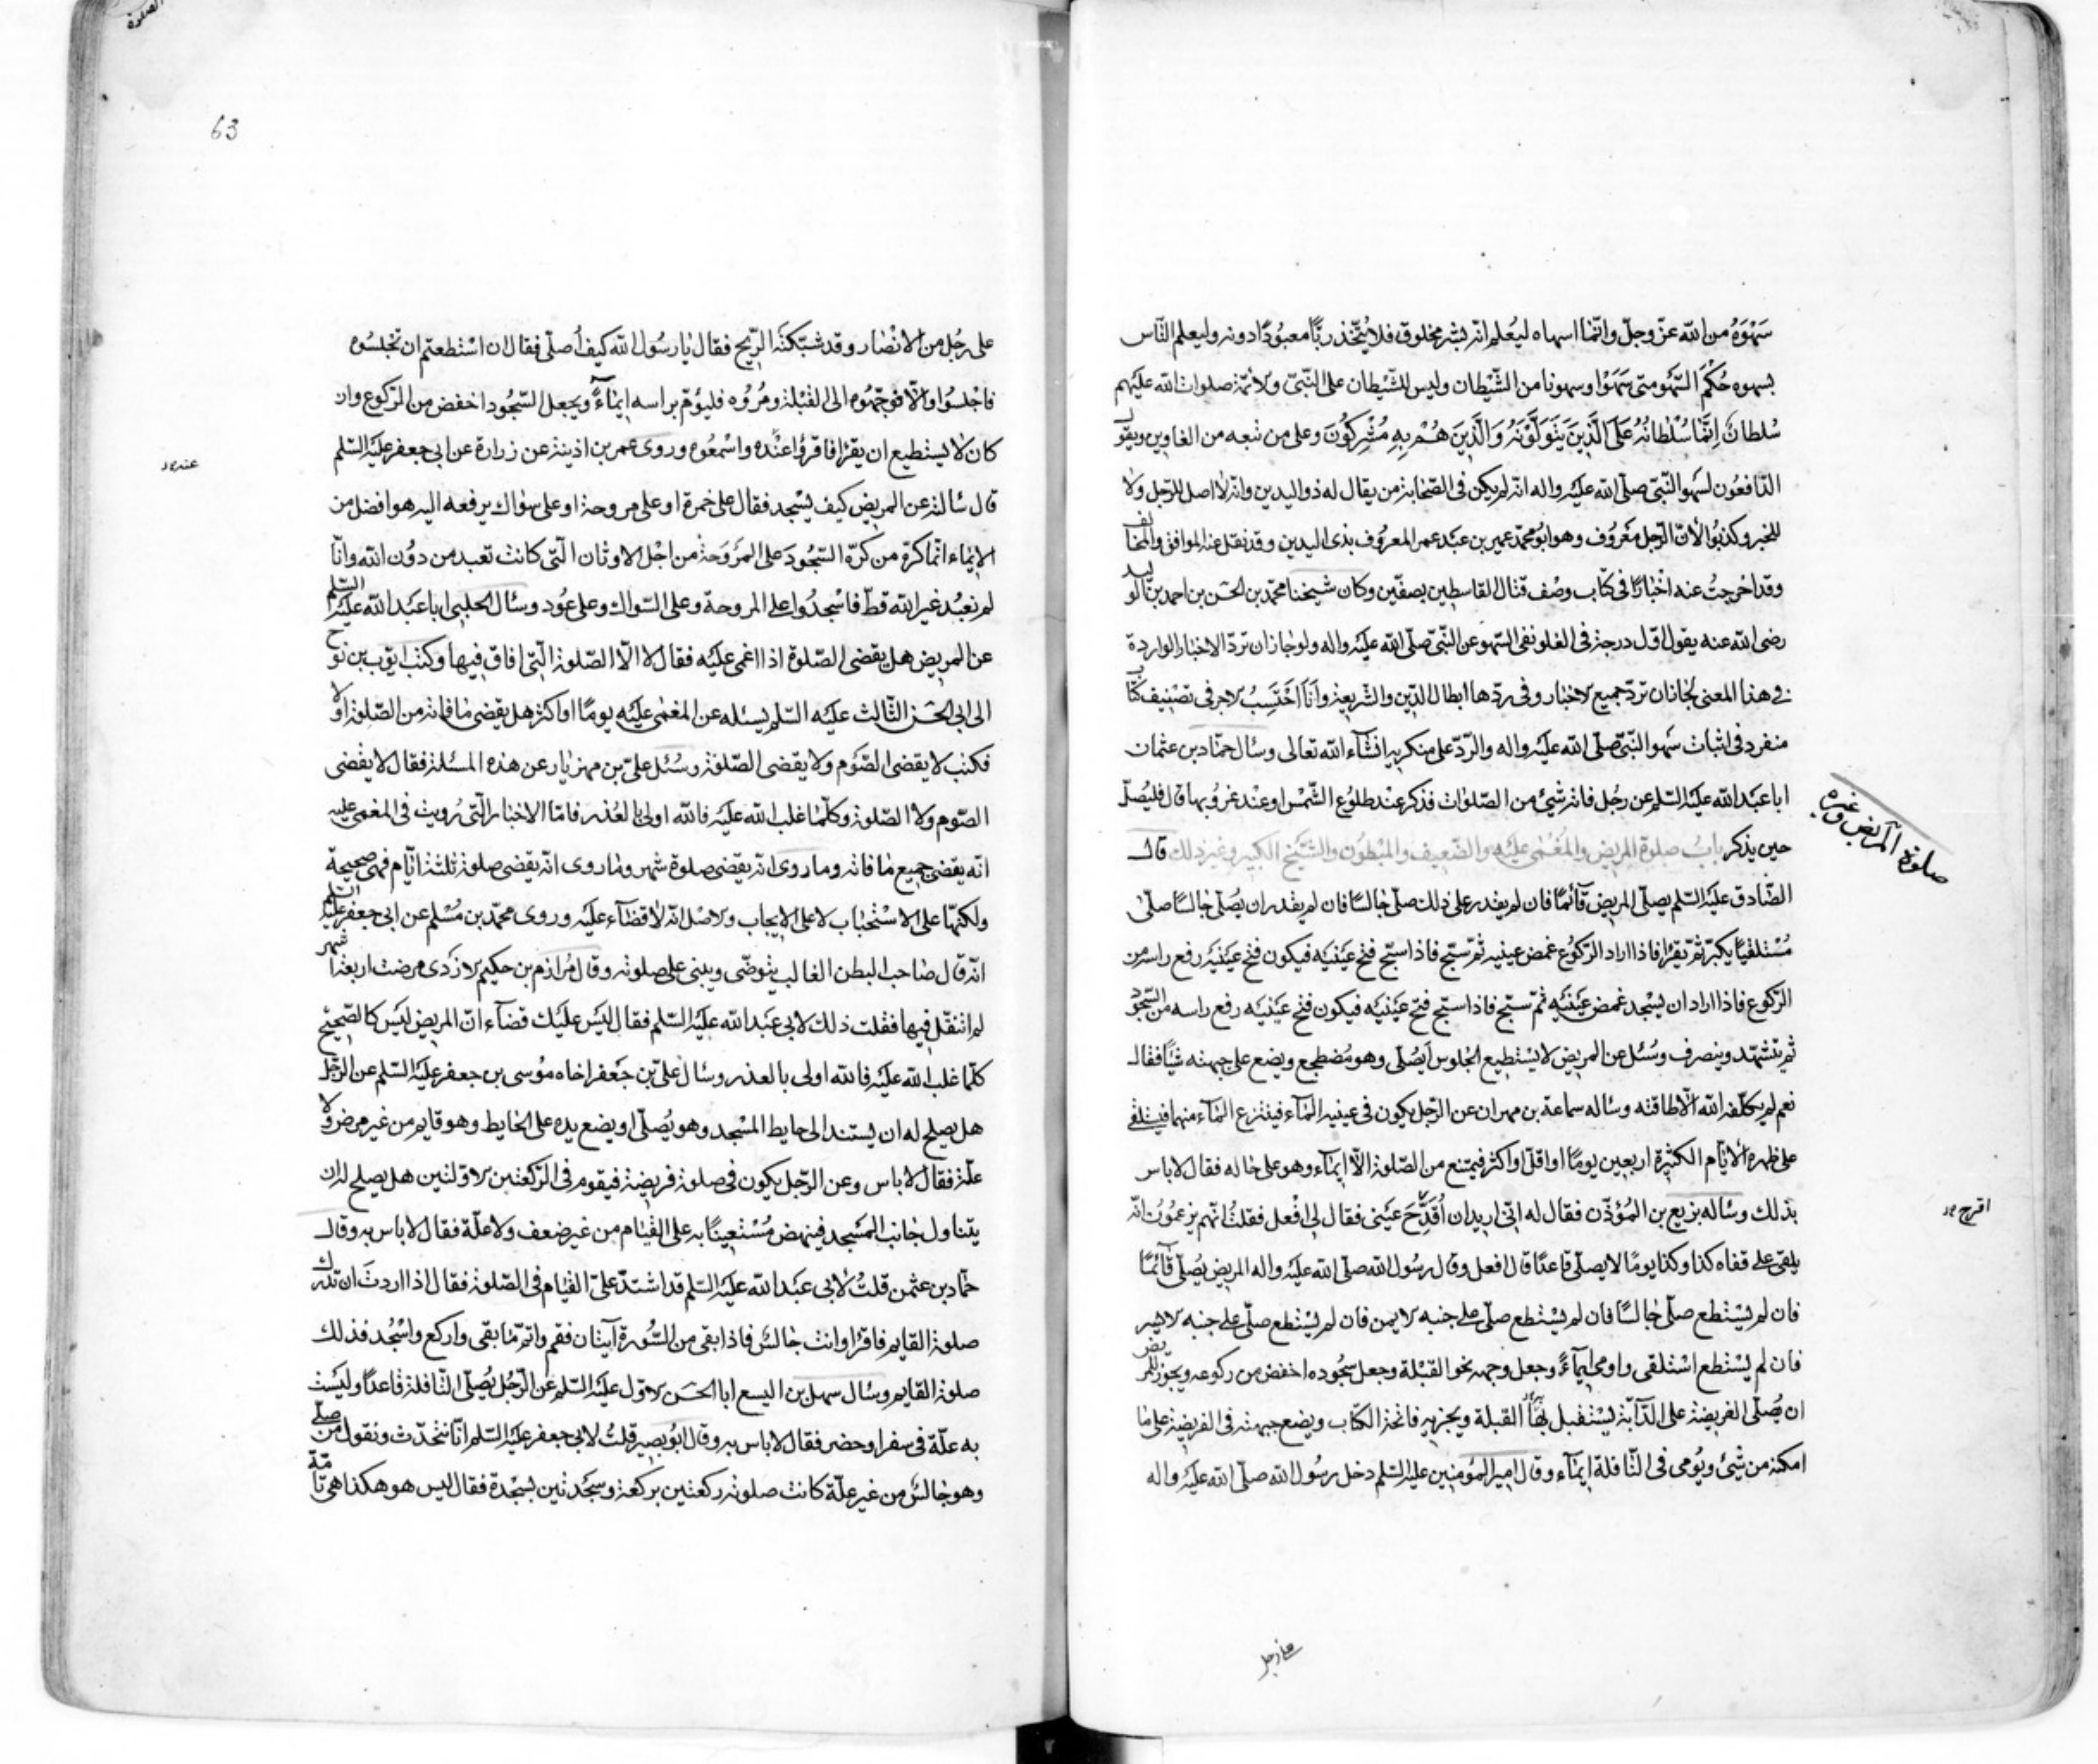 سَهْوَهُ من الله عزّ وجلّ وانّما اسهاه ليُعلم انّه بشر مخلوق فلا يُتّخذ ربًّا معبُودًا دونه وليعلم النّاس
بسهوه حُكْمَ السّهو متى سَهَوْا وسهونا من الشّيطان وليس للشّيطان على النّبيّ والائمّة صلوات الله عليهم
سُلطانٌ اِنَّمٰا سُلْطانُهُ عَلَى الَّذينَ يَتَوَلَّوْنَهُ وَالَّذينَ هُمْ بِهِ مُشْرِكُونَ وعلى من تبعه من الغاوين ويقول
الدّافعُون لسهو النّبيّ صلّى الله عليه واله انّه لم يكن في الصّحابة من يقال له ذو اليدين وانّه لا اصل للرّجل ولا
للخبر وكذبُوا لانّ الرّجل مَعْرُوف وهو ابُو محمّد عمير بن عبد عمر المعرُوف بذي اليدين وقد نقل عنه الموافق والمخالف
وقد اخرجتُ عنه اخْبارًا في كتاب وصْف قتال القاسطين بصفّين وكان شيخنا محمّد بن الحسن بن احمد بن الوليد
رضي الله عنه يقول اوّل درجة في الغلو نفي السّهو عن النّبيّ صلّى الله عليه واله ولو جاز ان تردّ الاخبار الواردة
في هذا المعنى لجاز ان تردّ جميع الاخبار وفي ردّها ابطال الدّين والشّريعة وانَا احْتَسِبُ الاجر في تصْنيف كتاب
منفرد في اثبات سَهو النّبيّ صلّى الله عليه واله والرّدّ على منكريه انشآء الله تعالى وسال حمّاد بن عثمان
ابا عبد الله عليه السّلم عن رجُل فاته شيئ من الصّلوات فذكر عنْد طلوُع الشّمْس او عنْد غرُوبها قال فليُصلّ
حين يذكر بابُ صلوة المريض والمُغْمٰى عليْه والضّعيف والمبْطوُن والشّيْخ الكبير وغير ذلك قال
صلوة المريض وغيره
الصّادق عليه السّلم يصلّي المريض قآئمًا فان لم يقدر على ذلك صلّى جالسًا فان لم يقدر ان يُصلّي جالسًا صلّى
مُسْتلقيًا يكبّر ثمّ يقرٔا فاذا اراد الرّكوُع غمض عينيه ثمّ سبّح فاذا سبّح فتح عيْنيْه فيكون فتح عيْنيْه رفع راسه من
الرّكوع فاذا اراد ان يسْجد غمض عيْنيْه ثمّ سبّح فاذا سبّح فتح عيْنيْه فيكون فتح عيْنيْه رفع راسه من السّجود
ثم يتشهّد وينصرف وسُئل عن المريض لا يسْتطيع الجلوس اَيصُلّي وهو مُضطجع ويضع على جبهته شيْئًا فقال
نعم لم يكلّفه الله الّا طاقته وساله سماعة بن مهران عن الرّجل يكون في عينيه المٰآء فينتزع المٰآء منهما فيستلقي
على ظهره الايّام الكثيرة اربعين يومًا او اقلّ او اكثر فيمتنع من الصّلوة الّا ايمآء وهو على حاله فقال لا باس
بذلك وساله بزيع بن المُؤذّن فقال له انّي اريد ان اُقدّحَ عَيْني فقال لي افْعل فقلتُ انّهم يزعمُونَ انّه
اقدح
يلقى على قفاه كذا وكذا يومًا لا يصلّي قاعدًا قال افعل وقال رسُول الله صلّى الله عليه واله المريض يُصلّي قآئمًا
فان لم يسْتطع صلّى جٰالسًا فان لم يسْتطع صلّى على جنبه الايمن فان لم يسْتطع صلّى على جنبه الايسر
فان لم يسْتطع اسْتلقى واومى ايمآءً وجعل وجهه نحو القبْلة وجعل سجُوده اخفض من ركوعه ويجوز للمريض
ان يُصلّي الفريضة على الدّآبّة يسْتقبل بها القبلة ويجزيه فاتحة الكتاب ويضع جبهته في الفريضة على مٰا
امكنه من شيئ ويُومي في النّافلة ايمٰآء وقال امير المؤمنين عليه السّلم دخل رسُول الله صلّى الله عليه واله
على رجل
63
على رجُل من الانْصٰار وقد شبّكتْهُ الرّيح فقال يٰا رسُول الله كيف اُصلّي فقال ان اسْتطعتم ان تجْلسُوه
فاجْلسُوه والّا فوجّهُوه الى القبْلة ومُرُوه فليؤم براسه ايمٰآءً ويجعل السّجُود اخفض من الرّكوع وان
كان لا يسْتطيع ان يقرٔا فاقرؤُا عنْده واسْمعُوه وروى عمر بن اذينة عن زرارة عن ابي جعفر عليه السّلم
قال سٔالته عن المريض كيف يسْجد فقال على خمرة او على مروحة او على سواك يرفعه اليه هو افضل من
الايمٰاء انّما كره من كَرّه السّجُودَ على المرْوَحة من اجْل الاوثان الّتي كانت تعبد من دوُن الله وانّا
لم نعبُد غير الله قطّ فاسْجدُوا على المروحة وعلى السّواك وعلى عوُد وسٔال الحلبي ابا عبد الله عليه السّلم
عن المريض هل يقضي الصّلوة اذا اغمى عليْه فقال لا الّا الصّلوة الّتي افاق فيها وكتب ايّوب بن نوح
الى ابي الحسن الثّالث عليه السّلم يسئله عن المغمٰى عليْه يومًا او اكثر هل يقضي مٰا فاته من الصّلوة او لا
فكتب لا يقضي الصّوْم ولا يقضي الصّلوة وسُئل عليّ بن مهزيٰار عن هذه المسئلة فقال لا يقْضي
الصّوم ولا الصّلوة وكلّمٰا غلب الله عليه فالله اولىٰ بالعُذر فامّا الاخبٰار الّتي رُويت في المغمى عليه
انّه يقضي جميع مٰا فاته وما روى انه يقضي صلوة شهر ومٰا روى انّه يقضي صلوة ثلثة ايّام فهي صحيحة
ولكنّها على الاسْتحبٰاب لا على الايجاب والاصْل انّه لا قضٰآء عليْه وروى محمّد بن مُسْلم عن ابي جعفر عليه السّلم
انّه قال صٰاحب البطن الغالب يتوضّى ويبني على صلوته وقال مُرازم بن حكيم الازْدي مرضت اربعة اشهر
لم اتنفّل فيها فقلت ذلك لابي عبد الله عليه السّلم فقال ليْس عليْك قضآء انّ المريض ليْس كالصّحيح
كلّما غلب الله عليْه فالله اولى بالعذر وسٔال عليّ بن جعْفر اخاه موُسى بن جعفر عليه السّلم عن الرّجل
هل يصلح له ان يستند الى حايط المسْجد وهو يُصلّي او يضع يده على الحٰايط وهو قايم من غير مرض ولا
علّة فقال لا باس وعن الرّجل يكون في صلوة فريضة فيقوم في الرّكعتين الاوّلتين هل يصلح له ان
يتناول جانب المسْجد فينهض مُسْتعينًا به على القيٰام من غير ضعف ولا علّة فقال لا باس به وقال
حمّاد بن عثمن قلتُ لابي عبد الله عليه السّلم قد اشتدّ عليّ القيٰام في الصّلوة فقال اذا اردتَ ان تدرك
صلوة القايم فاقرٔا وانت جٰالسٌ فاذا بقي من السُّورة آيتان فقم واتمّ مٰا بقي واركع واسْجُد فذلك
صلوة القايم وسٔال سهل بن اليسع ابا الحسَن الاوّل عليه السّلم عن الرّجُل يُصلّي النّافلة قاعدًا وليْست
به علّة في سفر او حضر فقال لا باس به وقال ابُو بصير قلتُ لابي جعفر عليه السّلم انّا نتحدّث ونقول من صلّى
وهو جٰالسٌ من غير علّة كانت صلوته ركعتين بركعة وسجْدتين بسجْدة فقال ليس هو هكذا هي تامّة